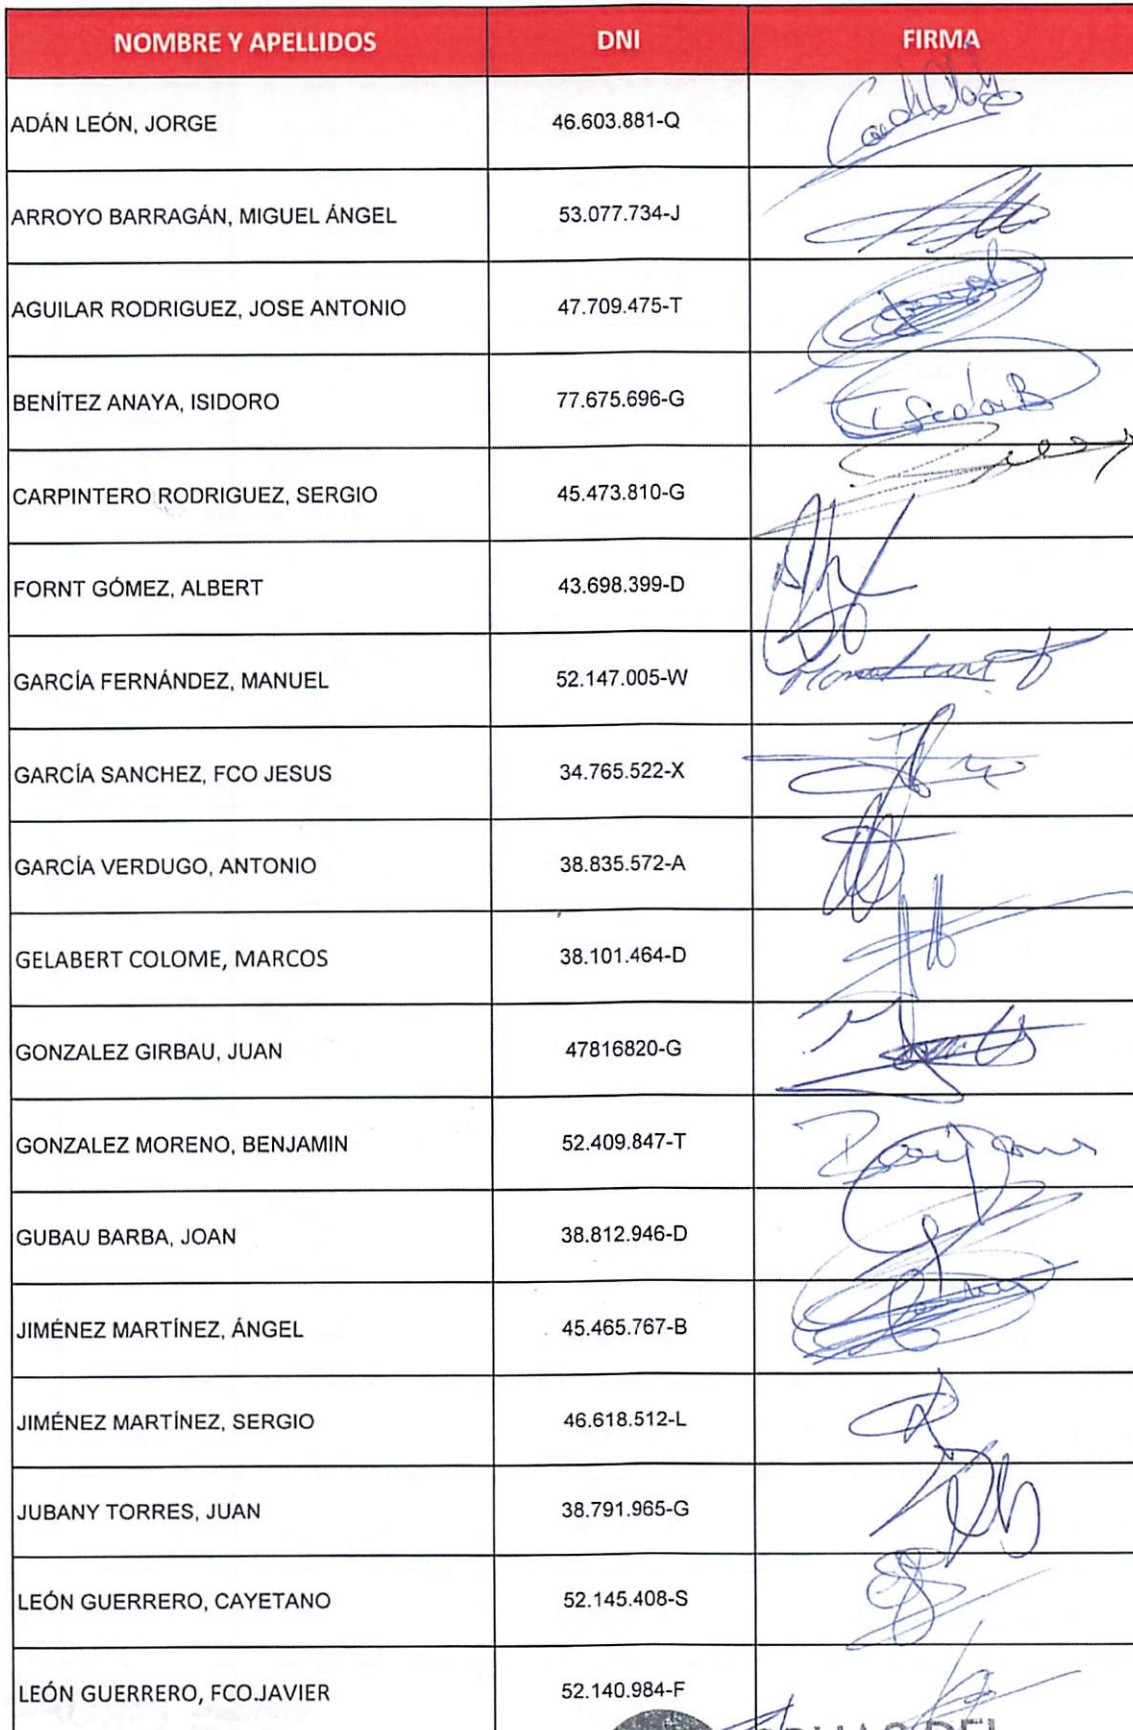 NOMBRE Y APELLIDOS DNI FIRMA
ADÁN LEÓN, JORGE 46.603.881-Q
ARROYO BARRAGÁN, MIGUEL ÁNGEL 53.077.734-J
AGUILAR RODRIGUEZ, JOSE ANTONIO 47.709.475-T
BENÍTEZ ANAYA, ISIDORO 77.675.696-G
CARPINTERO RODRIGUEZ, SERGIO 45.473.810-G
FORNT GÓMEZ, ALBERT 43.698.399-D
GARCÍA FERNÁNDEZ, MANUEL 52.147.005-W
GARCÍA SANCHEZ, FCO JESUS 34.765.522-X
GARCÍA VERDUGO, ANTONIO 38.835.572-A
GELABERT COLOME, MARCOS 38.101.464-D
GONZALEZ GIRBAU, JUAN 47816820-G
GONZALEZ MORENO, BENJAMIN 52.409.847-T
GUBAU BARBA, JOAN 38.812.946-D
JIMÉNEZ MARTÍNEZ, ÁNGEL 45.465.767-B
JIMÉNEZ MARTÍNEZ, SERGIO 46.618.512-L
JUBANY TORRES, JUAN 38.791.965-G
LEÓN GUERRERO, CAYETANO 52.145.408-S
LEÓN GUERRERO, FCO.JAVIER 52.140.984-F